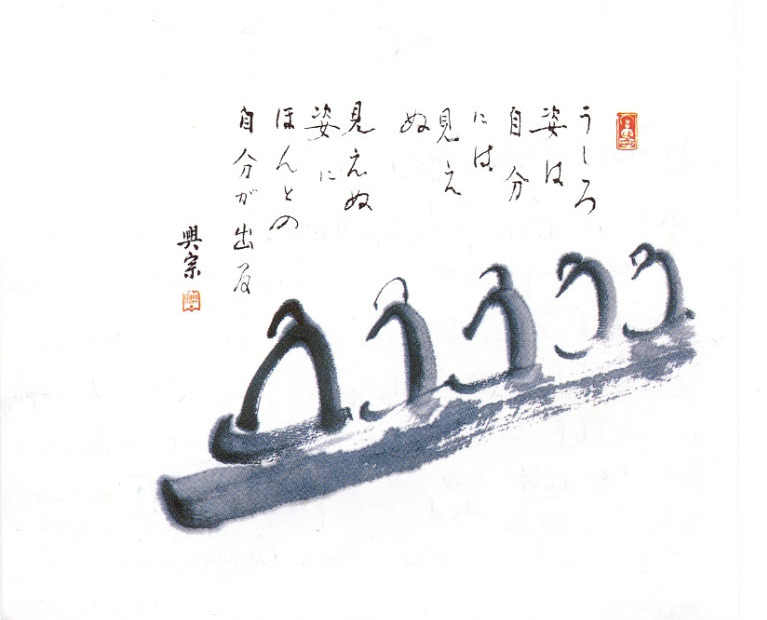 うしろ
姿は
自分
には
見え
ぬ
見えぬ
姿に
ほんとの
自分が出る
興宗